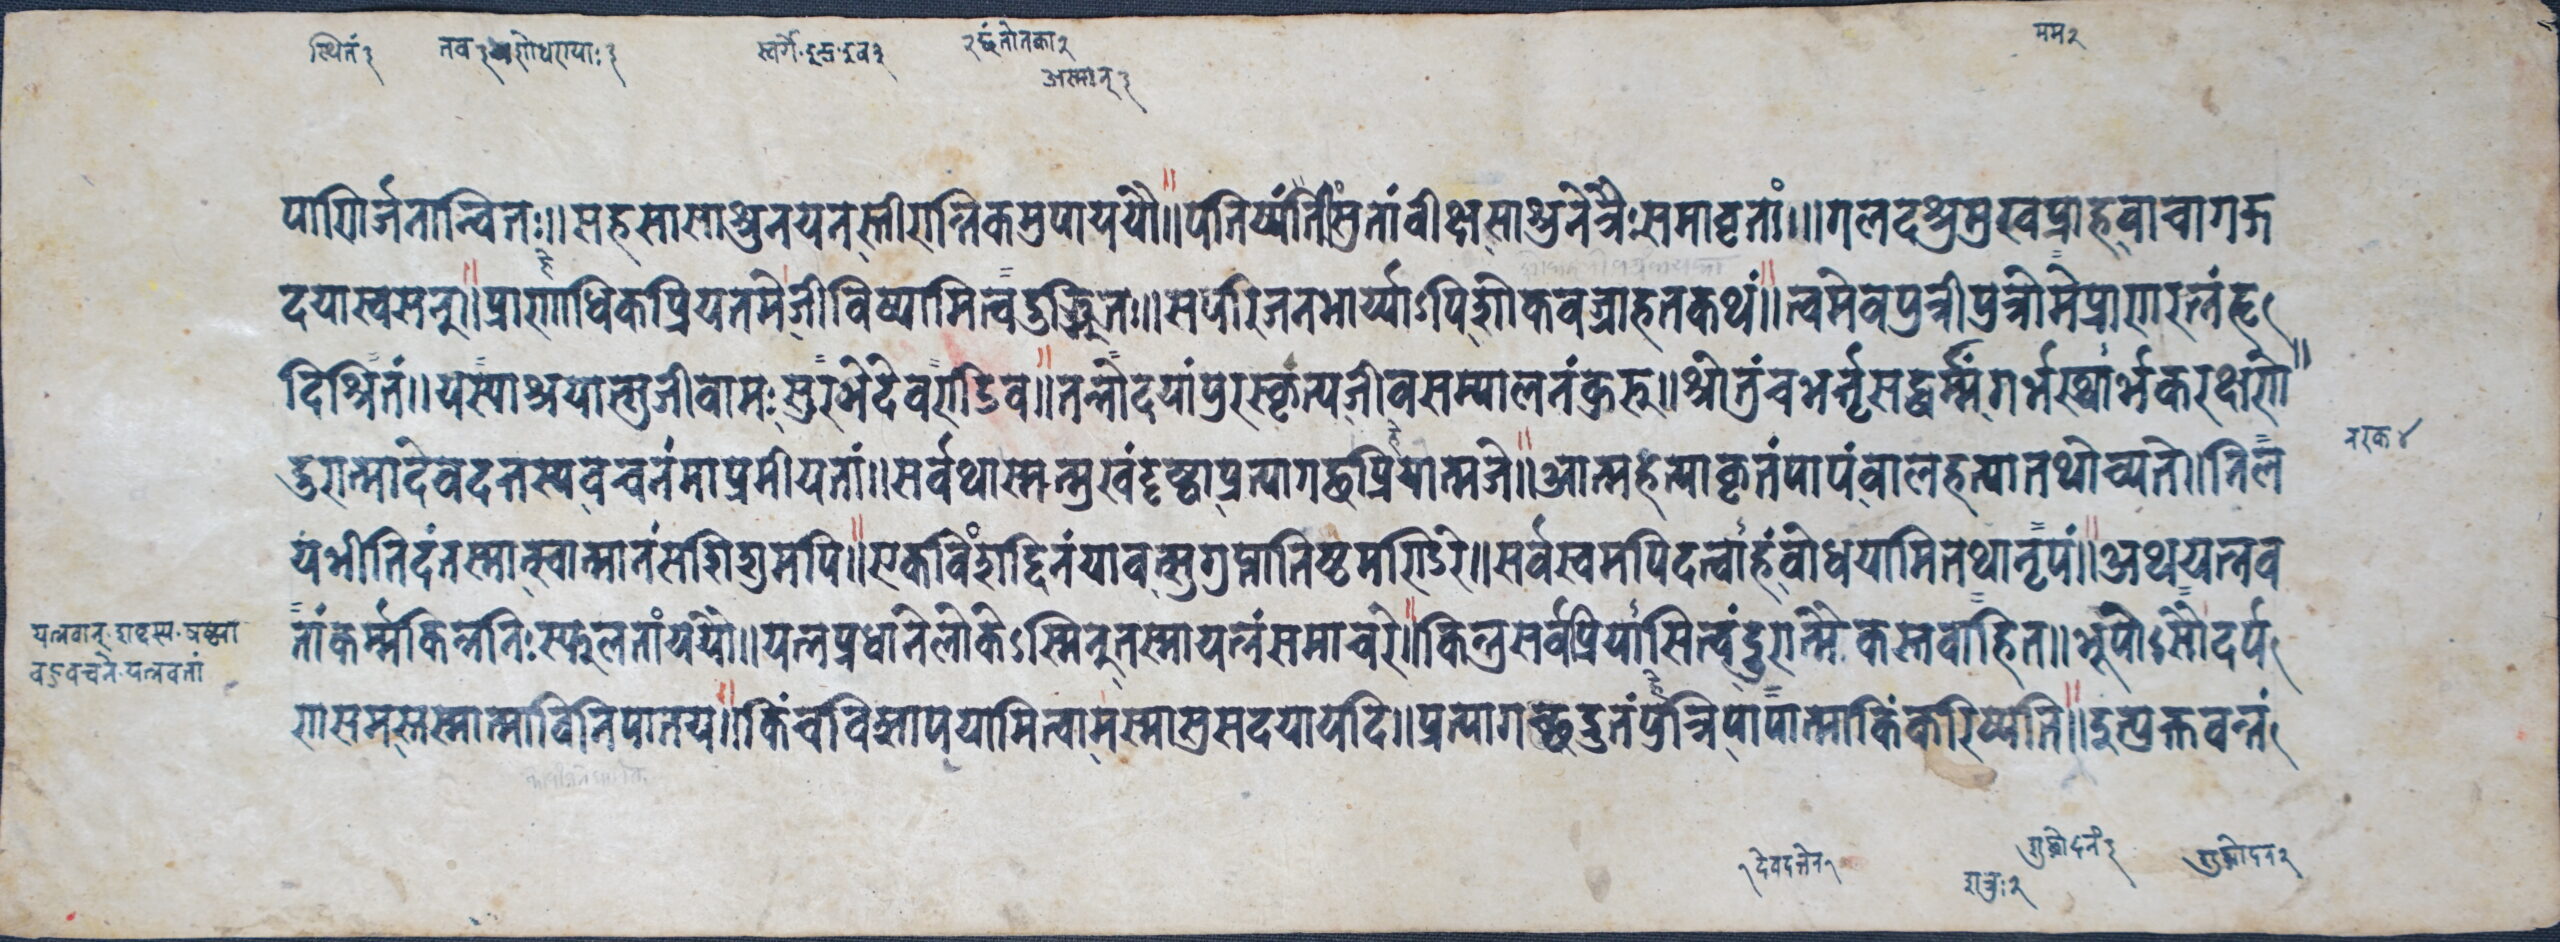 स्थितं३ तव३ यशोधरायाः३ स्वर्गे इन्द्र इव३ २ मम२
अस्मान्३
पाणिर्जनान्वितः॥ सहसासाश्रुनयनस्तीरान्तिकमुपाययौ॥ पतिष्यंतीं सुतां वीक्ष्य साश्रुनेत्रैः समावृतां॥ गलदश्रुमुखप्राह वाचा गद्ग
दया स्वसनु॥ प्राणाधिकप्रियतमे जीविष्यामि त्वदुज्झितः॥ सपरिजनभार्य्याऽपि शोकवज्राहत कथं॥ त्वमेव पुत्री पुत्रो मे प्राणरत्नं हृ
दि श्रितं॥ यस्या श्रयात्सुजीवामः सुरभे देवराडिव॥ तन्नो दयां पुरस्कृत्य जीवसम्पालनं कुरु॥ श्रोतुं च भर्तृसद्धर्म्मं गर्भस्थार्भकरक्षणे
दुरात्मा देवदत्तस्य वचनं मा प्रमीयतां॥ सर्वथास्मन्मुखं दृष्ट्वा प्रत्यागछ प्रियात्मजे॥ आत्महत्याकृतं पापं वालहत्या तथोच्यते॥ निल
यं भीतिदं तस्मात्स्वात्मानं सशिशुमपि॥ एकविंशद्दिनं यावत्सुगुप्ता तिष्ठ मणिऽरे॥ सर्वस्वमपि दत्वाहं वोधयामि तथा नृपं॥ अथ यत्नव
तां कर्म्म किन्न निःस्फुलतां ययौ॥ यत्नप्रधाने लोकेऽस्मिन् तस्मा यत्नं समाचरे॥ किन्तु सर्वप्रियासि त्वं दुरात्मै कस्तवाहित॥ भूपोऽसौ दर्प
ण समस्तस्मात्मा विनिपातय॥ किं च विज्ञापयामि त्वामस्मासु सदया यदि॥ प्रत्यागच्छ द्रुतं पुत्रि पापात्मा किं करिष्यति॥ इत्युक्तवन्तं
नरक४
यत्नवान् शब्दस्य षष्ठ्या
वहुवचने यत्नवतां
१ देवदत्तेन१ राज्ञः२ शुद्धोदनं३ शुद्धोदन२